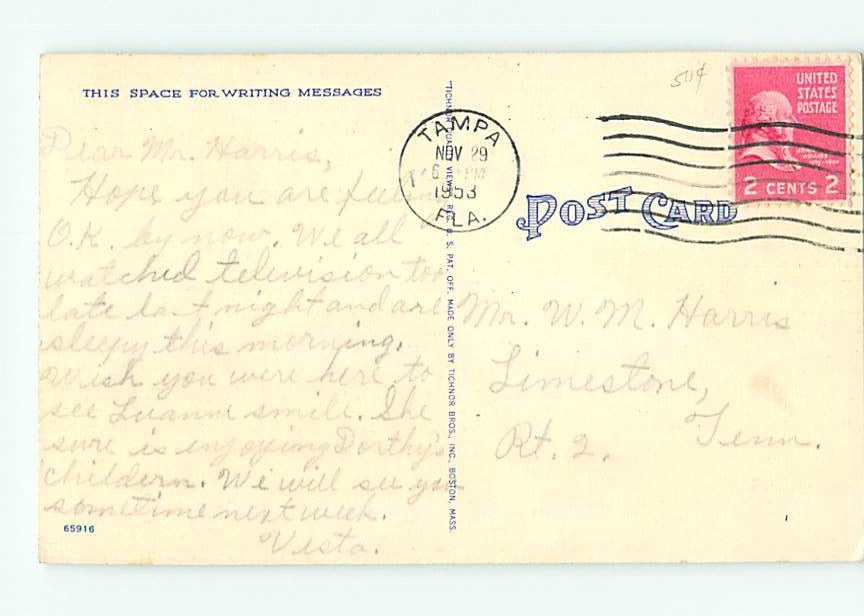 THIS SPACE FOR WRITING MESSAGES
Dear Mr. Harris,
Hope you are feeling
O.K. by now. We all
watched television too
late last night and are
sleepy this morning.
Wish you were here to
see Luanne smile. She
sure is enjoying Dorthy's
childern. We will see you
sometime next week.
Vesta.
65916
"TICHNOR QUALITY VIEWS," REG. U. S. PAT. OFF. MADE ONLY BY TICHNOR BROS., INC., BOSTON, MASS.
50¢
TAMPA
NOV 29
6 PM
1953
FLA.
UNITED
STATES
POSTAGE
JOHN
ADAMS
2 CENTS 2
POST CARD
Mr. W. M. Harris
Limestone,
Tenn.
Rt. 2.